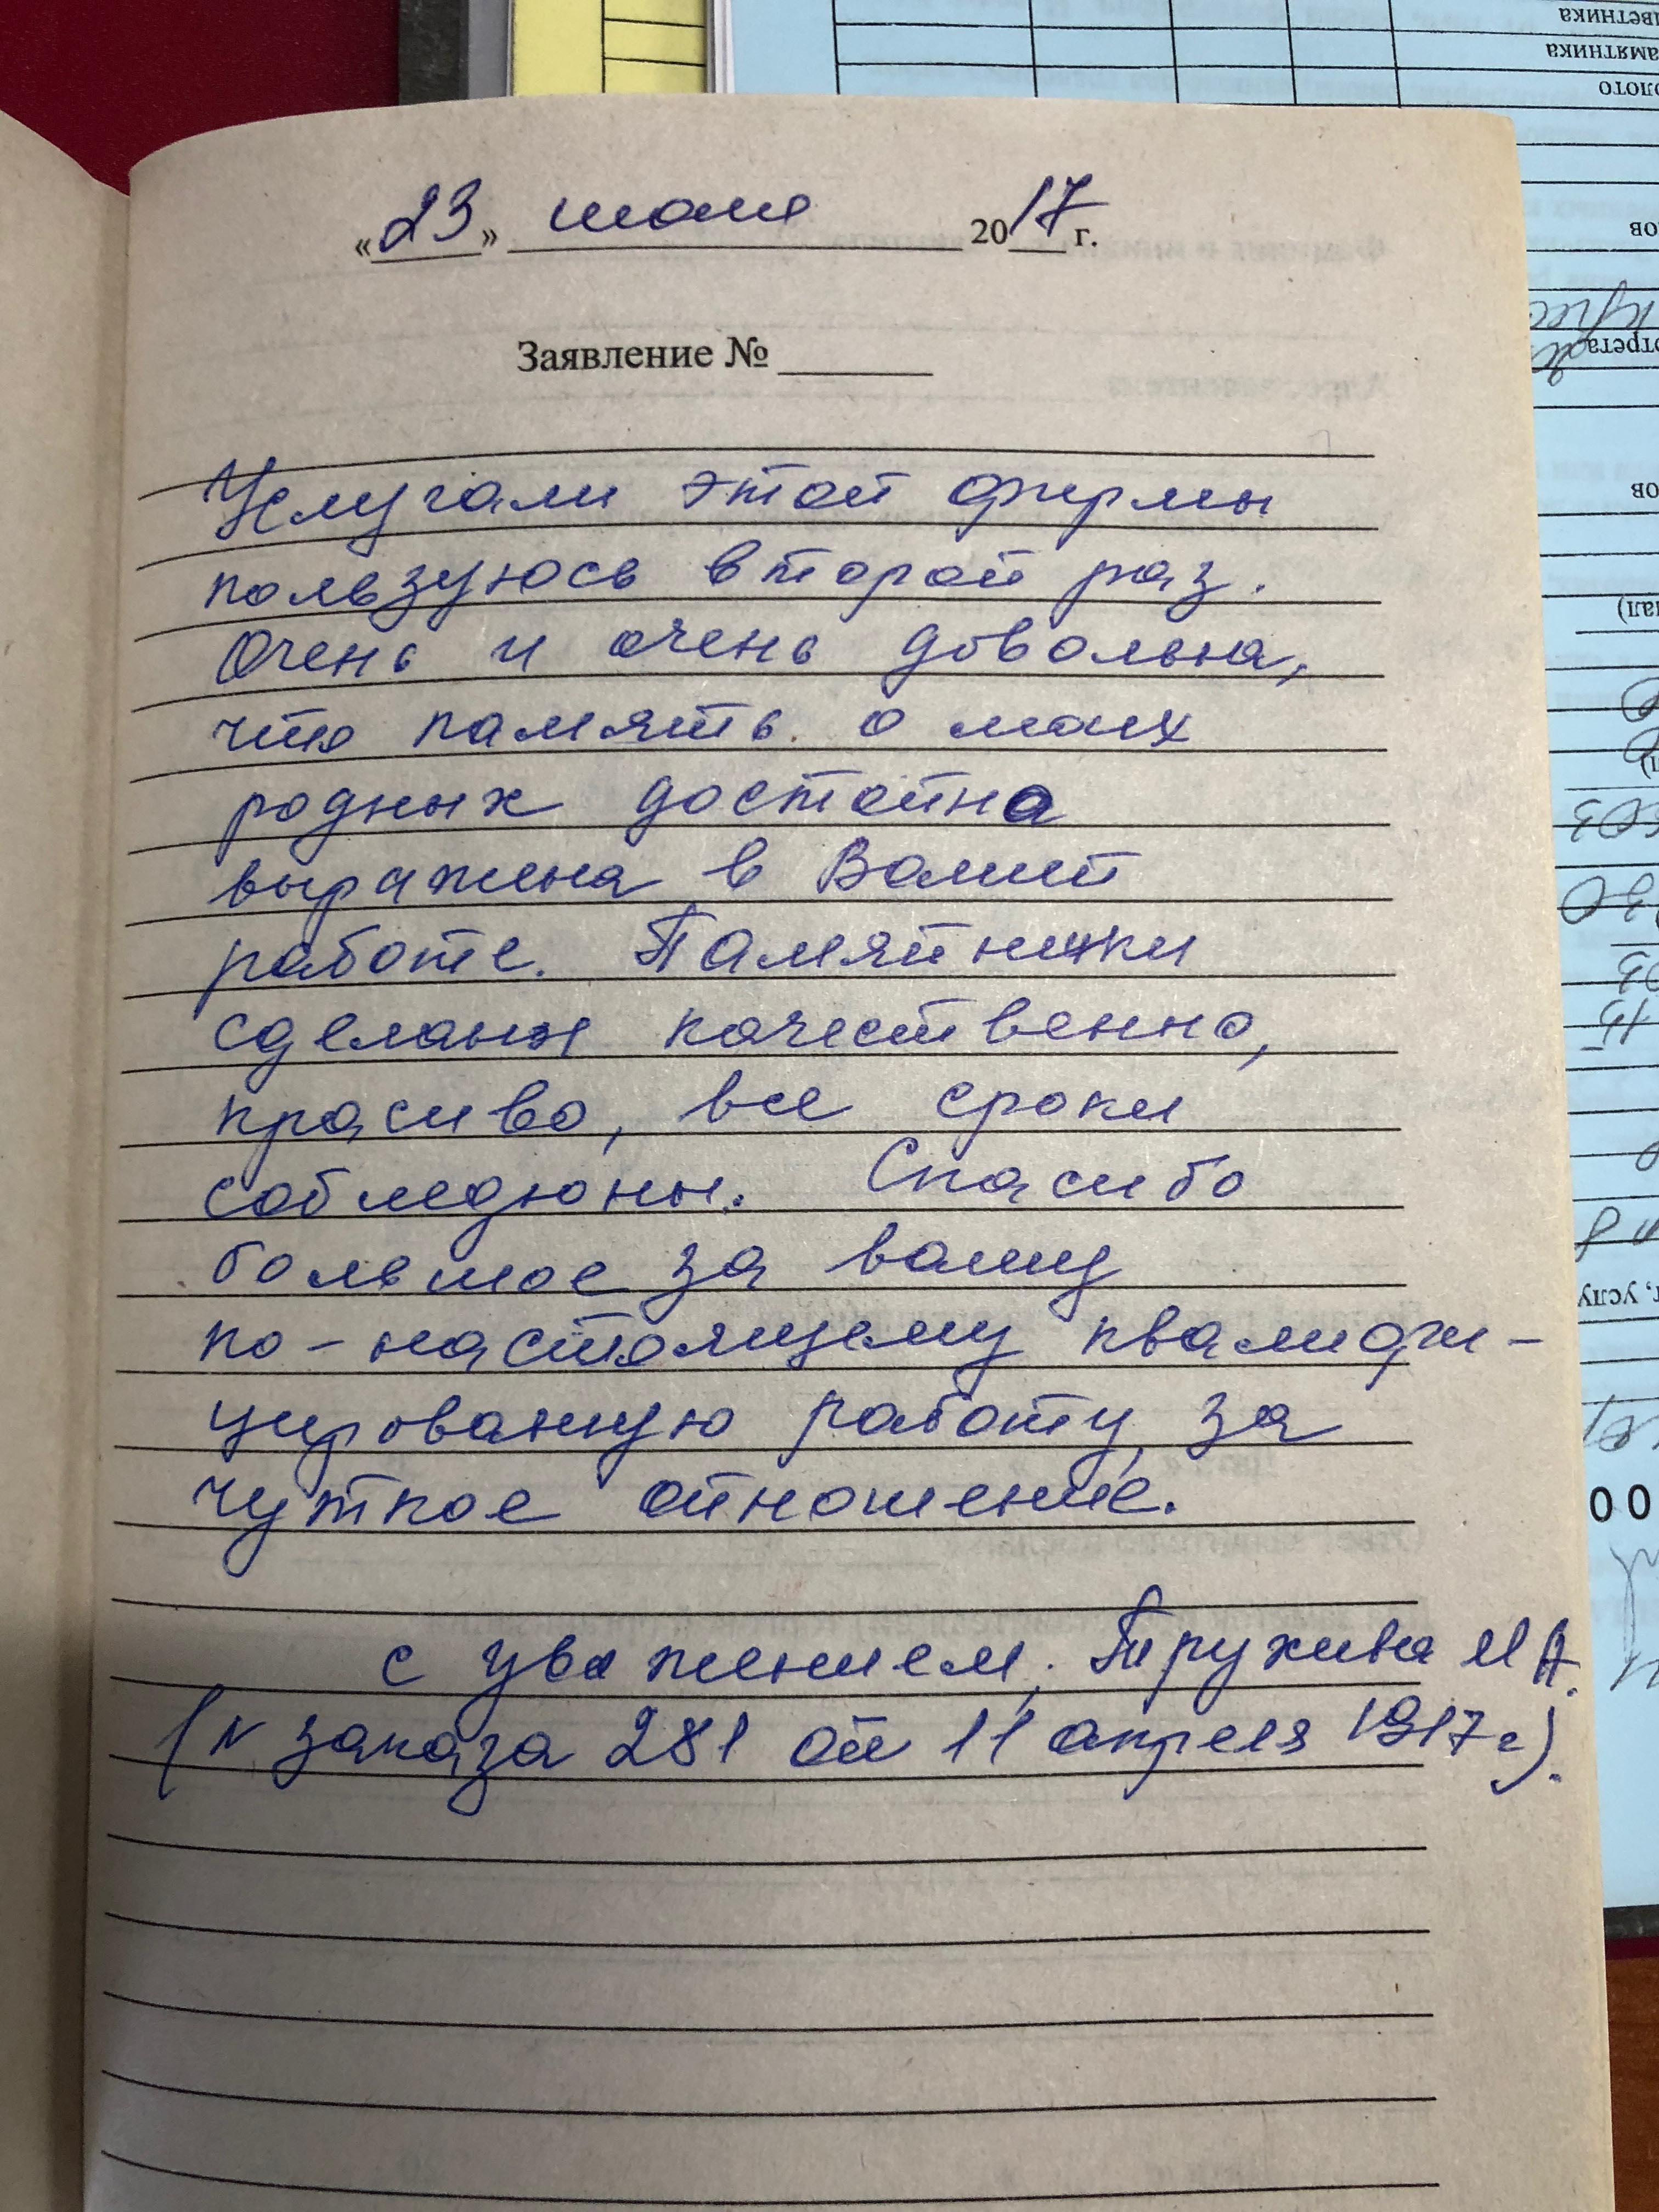 «23» июля 2017 г.
Заявление № ______
Услугами этой фирмы
пользуюсь второй раз.
Очень и очень довольна,
что память о моих
родных достойно
выражена в Вашей
работе. Памятники
сделаны качественно,
красиво, все сроки
соблюдены. Спасибо
большое за вашу
по-настоящему квалифи-
цированную работу, за
чуткое отношение.
с уважением, Пружина М А.
(N заказа 281 от 11 апреля 1917г).
цветника
амятника
олото
ов
отрета
ов
иал)
г, услу
00